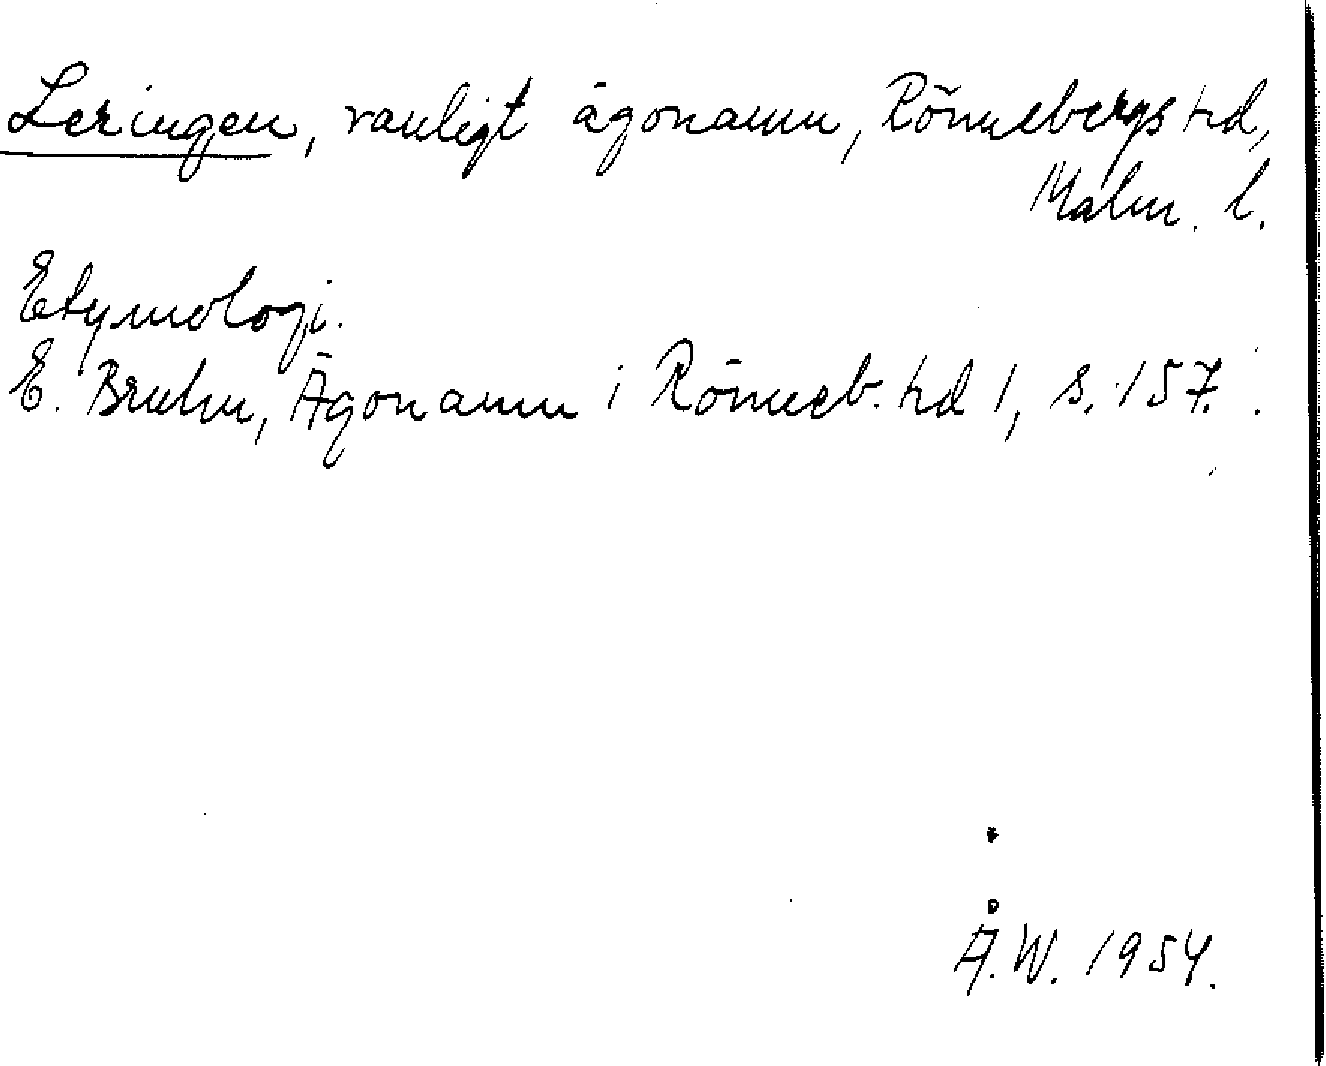 Leringen, vanligt ägonamn, Rönnebergs hd,
Malm. l.
Etymologi.
E. Bruhn, Ägonamn i Rönneb. hd 1, s. 157.
Å.W. 1954.